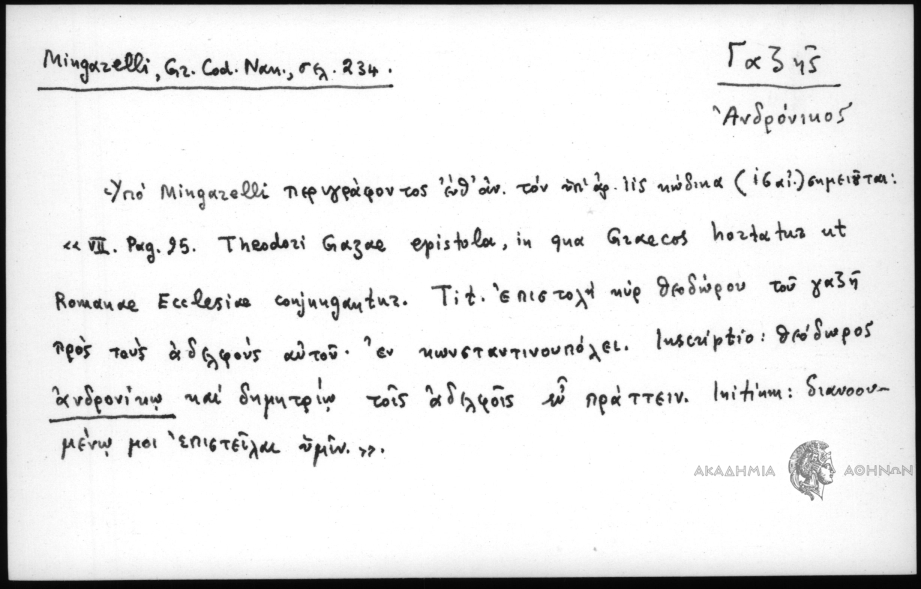 Mingarelli, Gr. Cod. Nan., σελ. 234.
Γαζῆς
Ἀνδρόνικος
Ὑπό Mingarelli περιγράφοντος ἐνθ' ἀν. τόν ὑπ' ἀρ. κώδικα σημειοῦται:
« VII. Pag. 95. Theodori Gazae epistola, in qua Graecos hortatur ut
Romanae Ecclesiae conjungantur. Tit. ἐπιστολὴ κὺρ θεοδώρου τοῦ γαζῆ
πρὸς τοὺς ἀδελφοὺς αὐτοῦ· ἐν κωνσταντινουπόλει. Inscriptio: θεόδωρος
ἀνδρονίκῳ καὶ δημητρίῳ τοῖς ἀδελφοῖς εὖ πράττειν. Initium: διανοου-
μένῳ μοι ἐπιστεῖλαι ὑμῖν. ».
ΑΚΑΔΗΜΙΑ ΑΘΗΝΩΝ